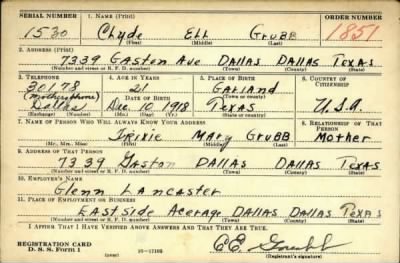 SERIAL NUMBER 1. NAME (Print) ORDER NUMBER
1530 Clyde Ell Grubb 1851
(First) (Middle) (Last)
2. ADDRESS (Print)
7339 Gaston Ave DALLAS DALLAS TEXAS
(Number and street or R. F. D. number) (Town) (County) (State)
3. TELEPHONE 4. AGE IN YEARS 5. PLACE OF BIRTH 6. COUNTRY OF CITIZENSHIP
30178 21 Garland
(mothers phone) DATE OF BIRTH (Town or county)
Dallas Dec 10 1918 Texas U.S.A.
(Exchange) (Number) (Mo.) (Day) (Yr.) (State or country)
7. NAME OF PERSON WHO WILL ALWAYS KNOW YOUR ADDRESS 8. RELATIONSHIP OF THAT PERSON
Trixie Mary Grubb Mother
(Mr., Mrs., Miss) (First) (Middle) (Last)
9. ADDRESS OF THAT PERSON
7339 Gaston DALLAS DALLAS TEXAS
(Number and street or R. F. D. number) (Town) (County) (State)
10. EMPLOYER'S NAME
Glenn Lancaster
11. PLACE OF EMPLOYMENT OR BUSINESS
East Side Acerage DALLAS DALLAS TEXAS
(Number and street or R. F. D. number) (Town) (County) (State)
I AFFIRM THAT I HAVE VERIFIED ABOVE ANSWERS AND THAT THEY ARE TRUE.
REGISTRATION CARD
D. S. S. Form 1 C E Grubb
(Registrant's signature)